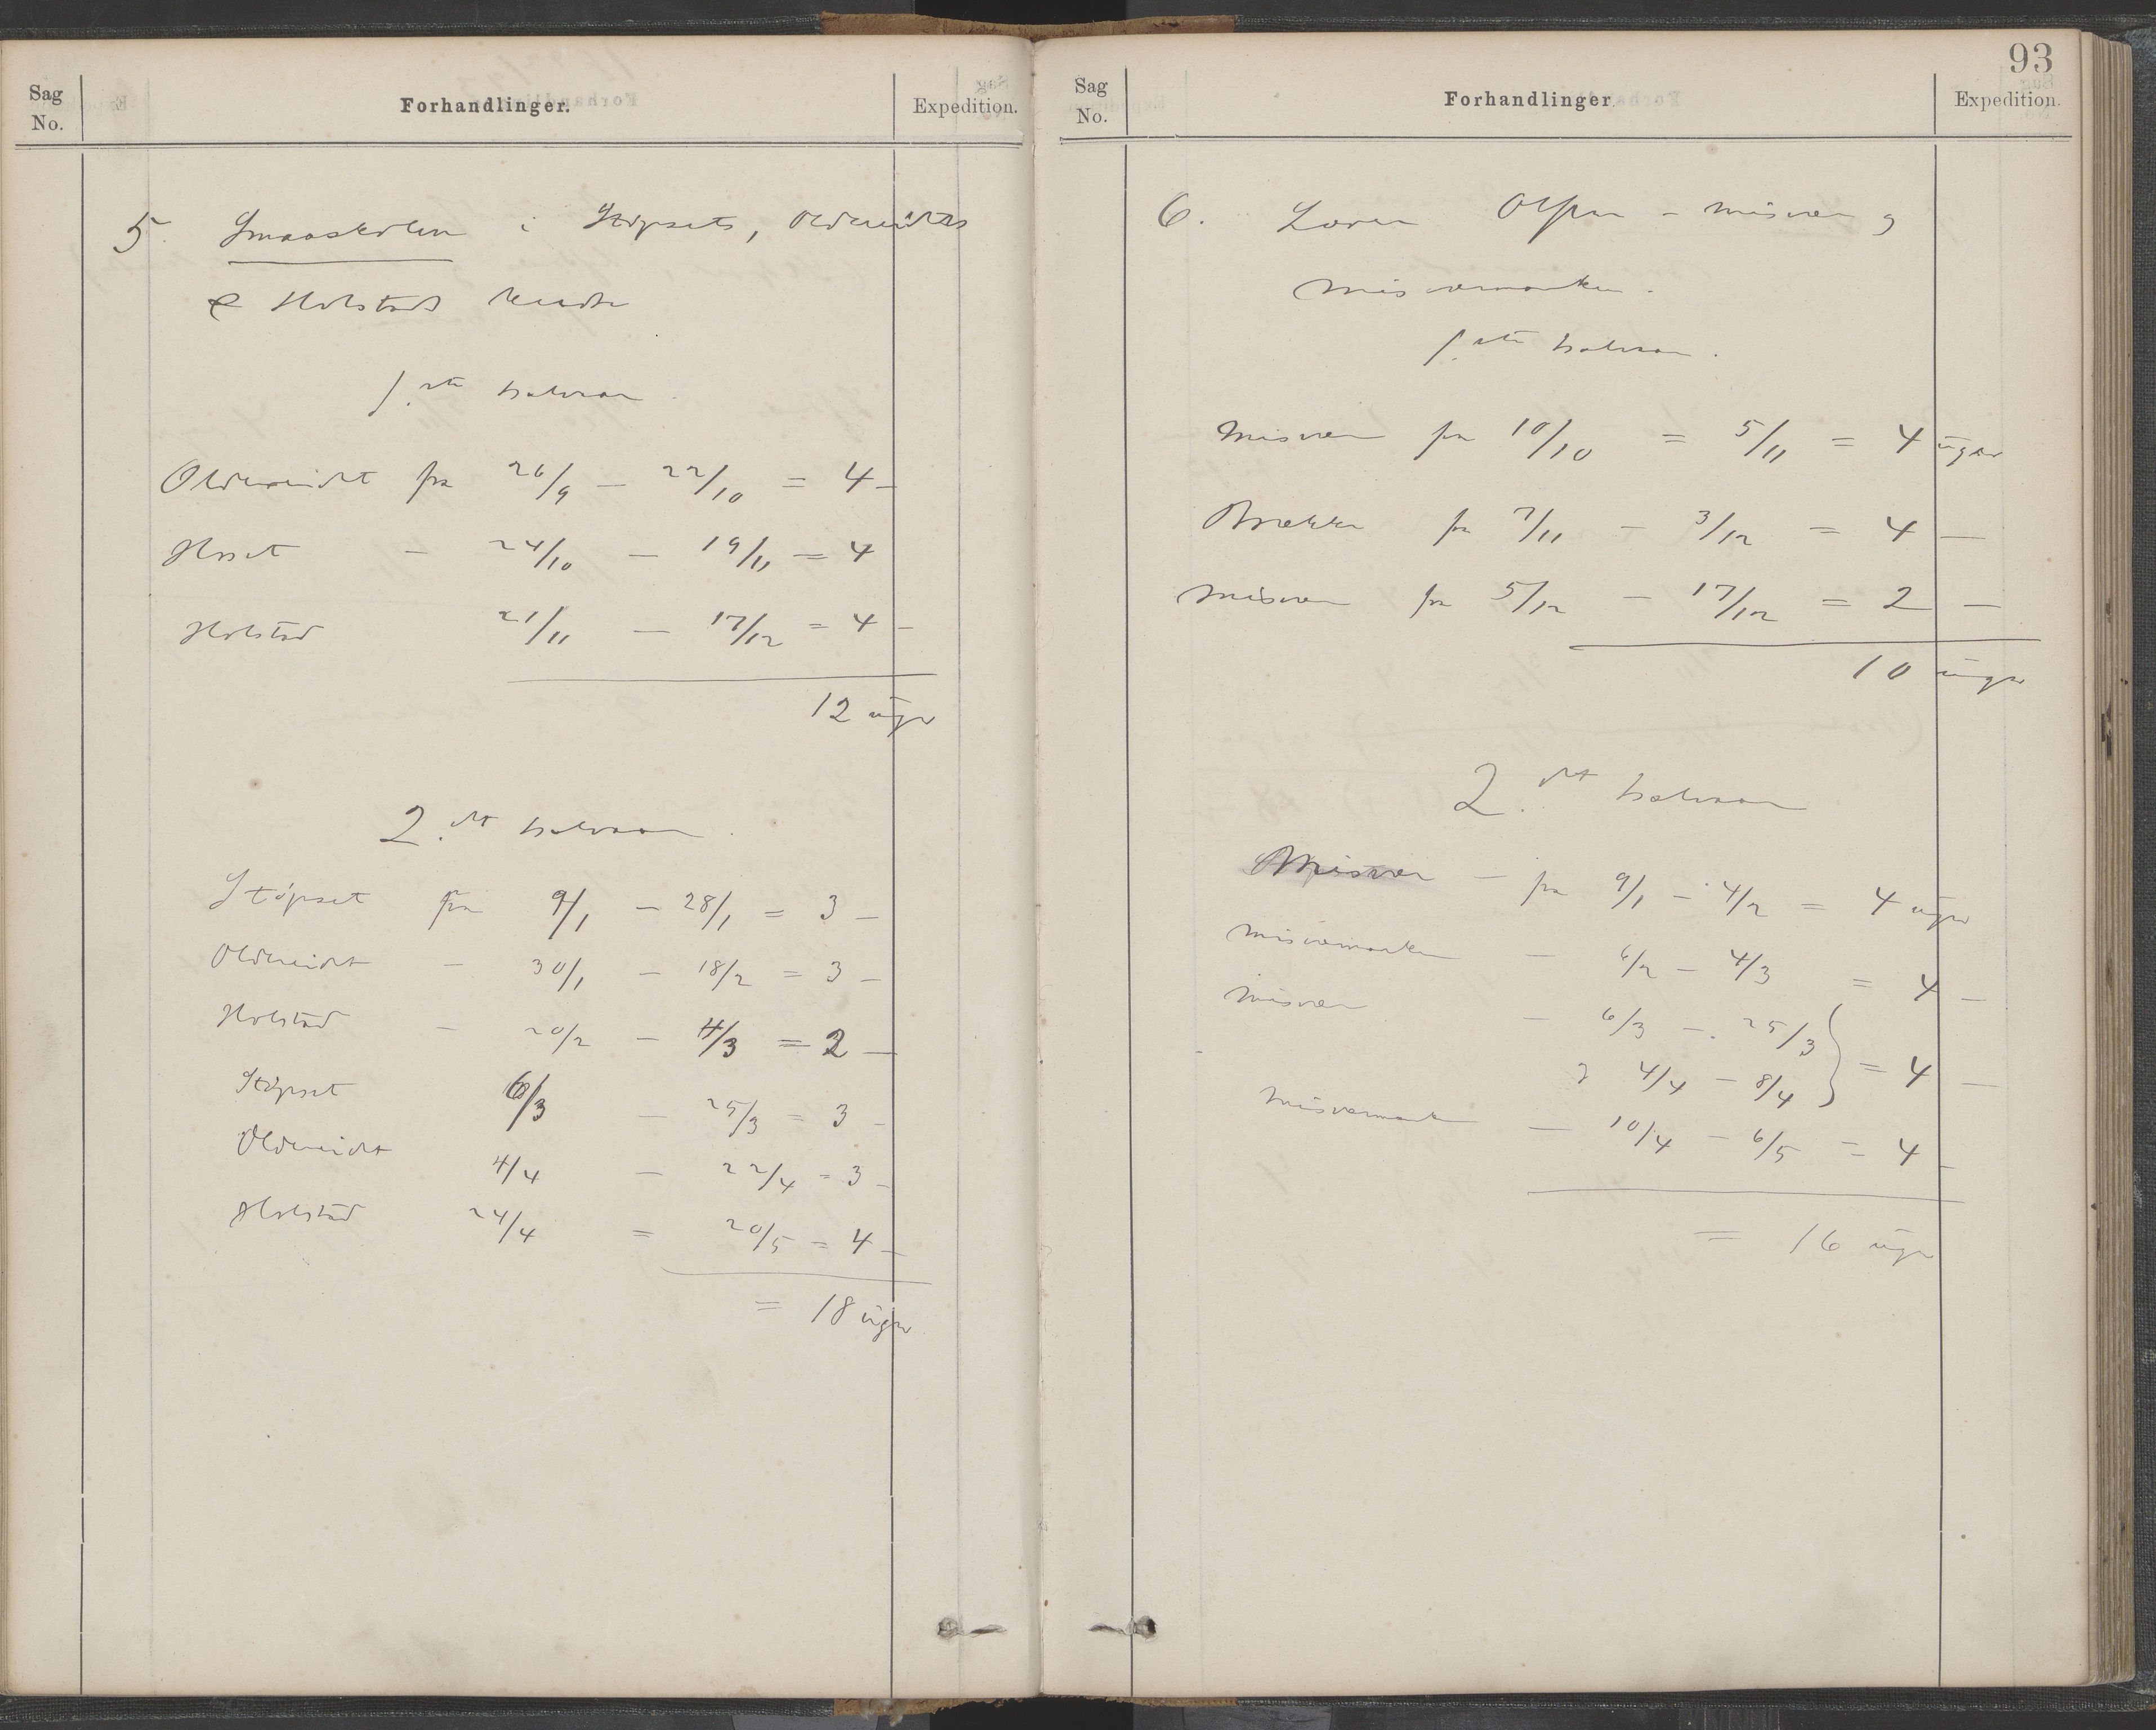 Sag No. Forhandlinger. Expedition.
5. Smaaskolen i Støpsets, Oldereidets
& Holstads kredse
1.ste halvaar.
Oldereidet fra 26/9 – 22/10 = 4 –
Hosset – 24/10 – 19/11 = 4
Holstad 21/11 – 17/12 = 4 –
12 uger
2.det halvaar.
Støpset fra 9/1 – 28/1 = 3 –
Oldereidet – 30/1 – 18/2 = 3 –
Holstad – 20/2 – 4/3 = 2 –
Støpset 6/3 – 25/3 = 3 –
Oldereidet 4/4 – 22/4 = 3 –
Holstad 24/4 = 20/5 = 4 –
= 18 uger
93
Sag No. Forhandlinger. Expedition.
6. Lærer Olsen – Misvær og
Misværmarken.
1.ste halvaar.
Misvær fra 10/10 = 5/11 = 4 uger
Brække fra 7/11 – 3/12 = 4 –
Misvær fra 5/12 – 17/12 = 2 –
10 uger
2.det halvaar
Misvær – fra 9/1 – 4/2 = 4 uger
Misværmarken – 6/2 – 4/3 = 4 –
Misvær – 6/3 – 25/3
og 4/4 – 8/4 } = 4 –
Misværmark – 10/4 – 6/5 = 4 –
= 16 uger